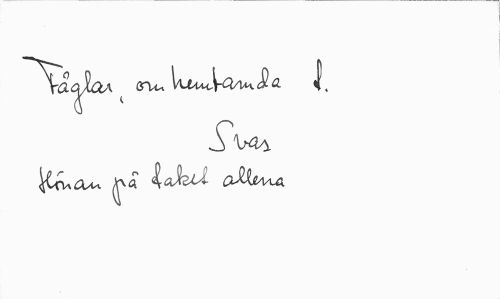 Fåglar, om hemtamda f.
Svas
Hönan på taket allena